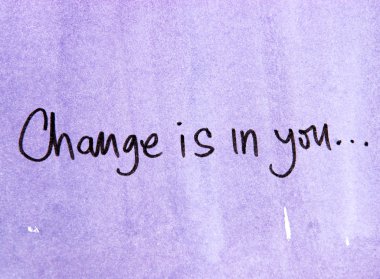 Change is in you...